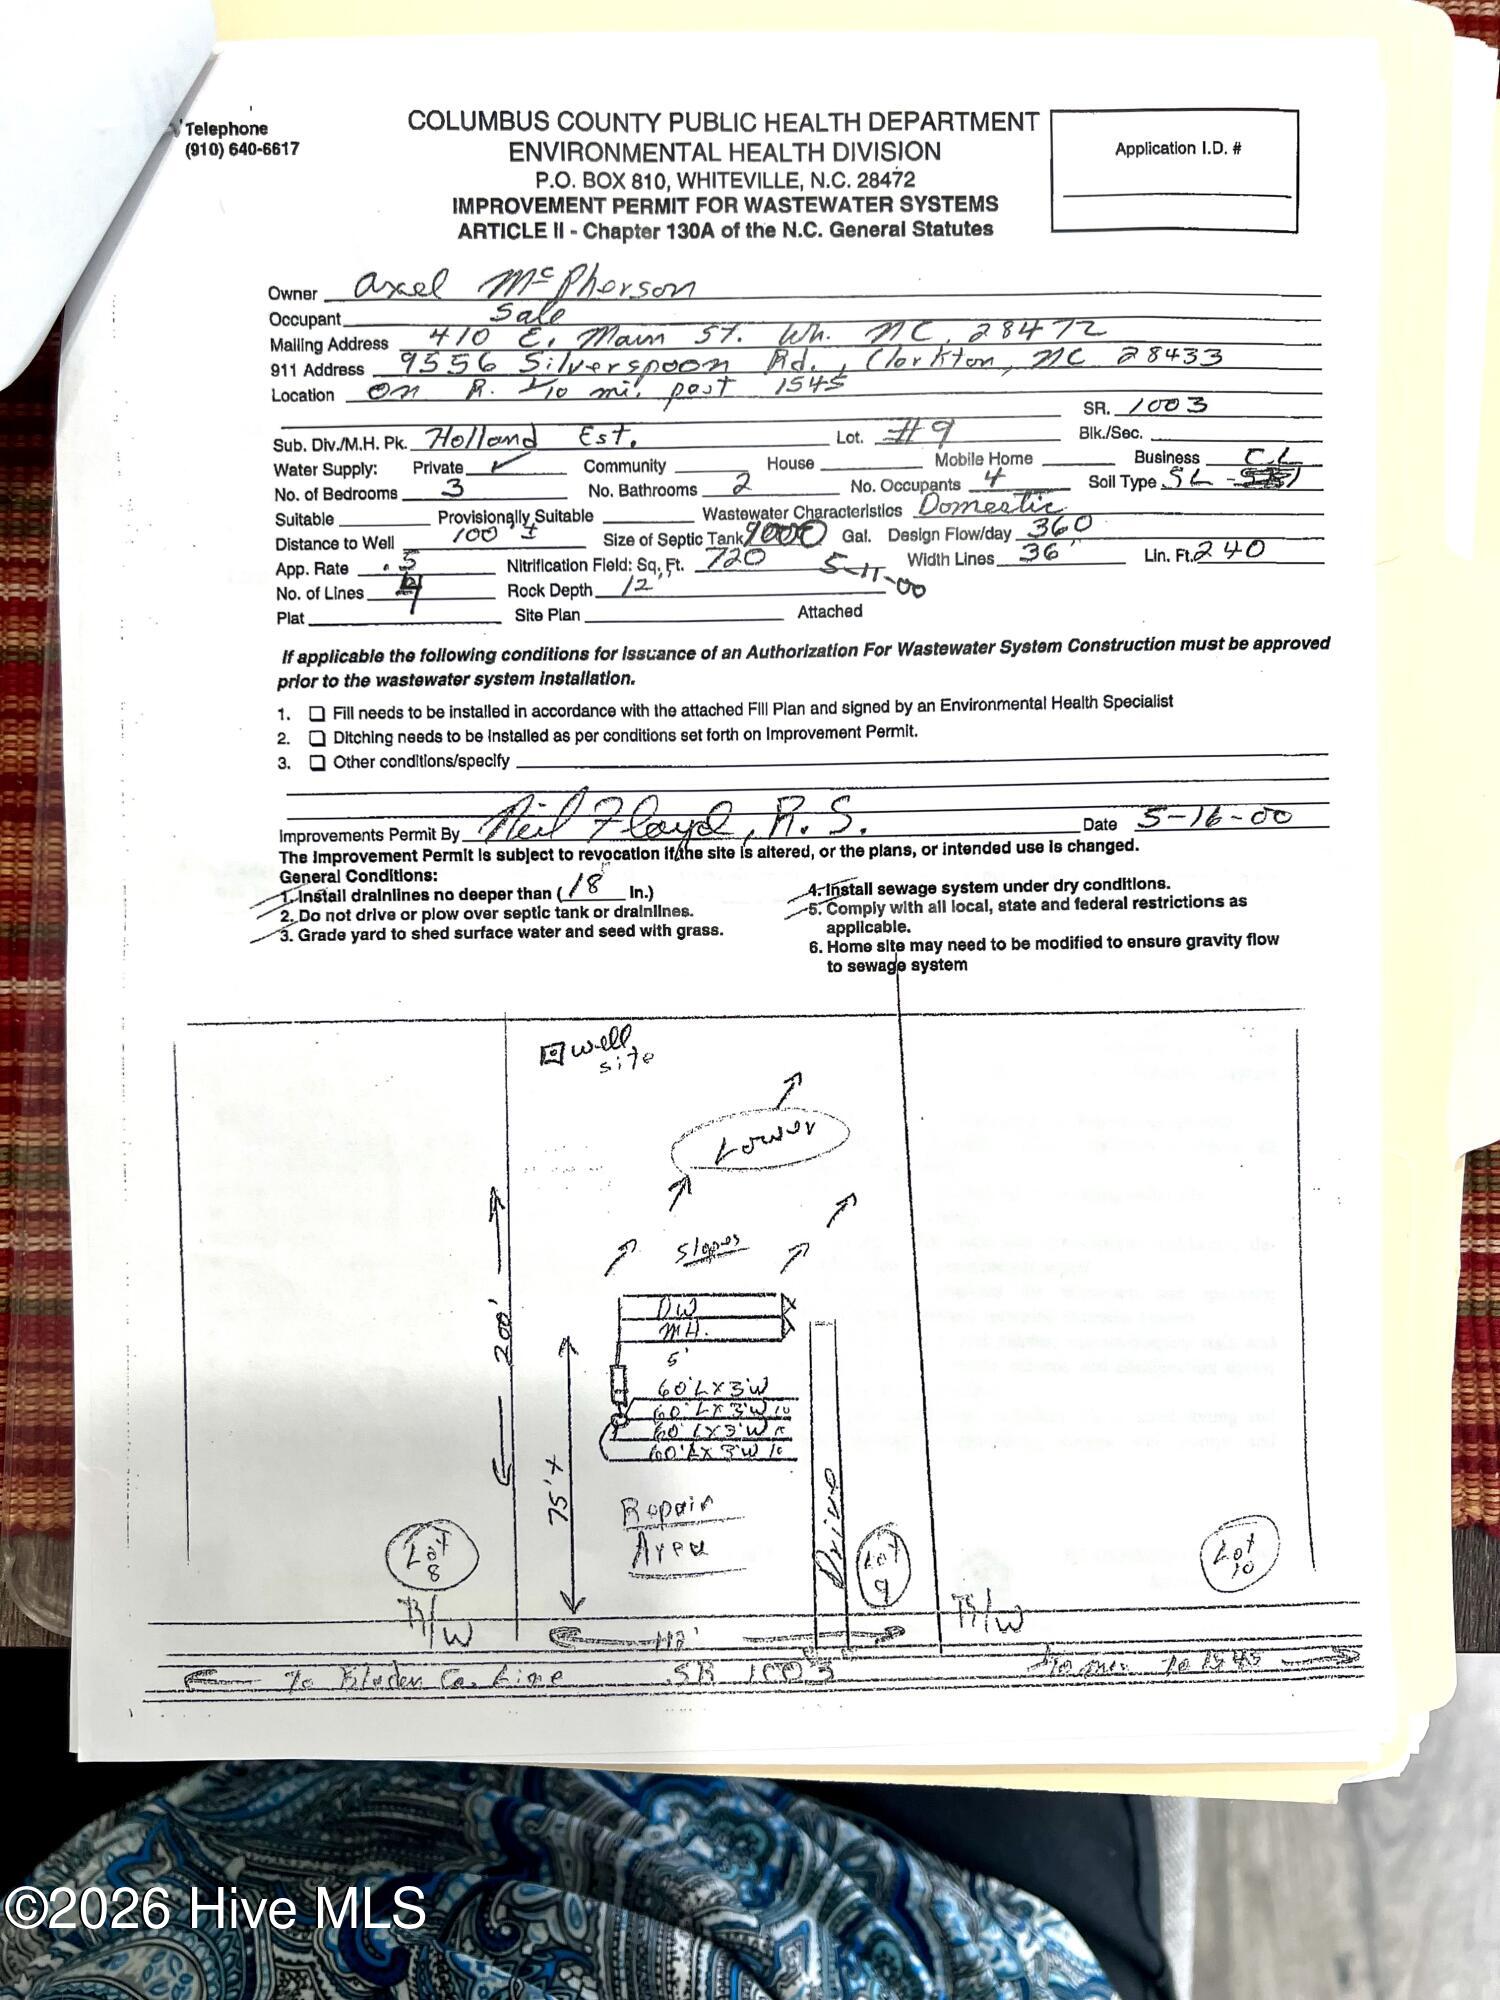 Telephone
(910) 640-6617
COLUMBUS COUNTY PUBLIC HEALTH DEPARTMENT
ENVIRONMENTAL HEALTH DIVISION
P.O. BOX 810, WHITEVILLE, N.C. 28472
IMPROVEMENT PERMIT FOR WASTEWATER SYSTEMS
ARTICLE II - Chapter 130A of the N.C. General Statutes
Application I.D. #
Owner Axel McPherson
Occupant Sale
Mailing Address 410 E. Main St. Wh. NC. 28472
911 Address 9556 Silverspoon Rd., Clarkton, NC 28433
Location On R. 1/10 mi. past 1545
SR. 1003
Sub. Div./M.H. Pk. Holland Est. Lot. #9 Blk./Sec.
Water Supply: Private ✓ Community House Mobile Home Business
No. of Bedrooms 3 No. Bathrooms 2 No. Occupants 4 Soil Type SL - CL
Suitable Provisionally Suitable Wastewater Characteristics Domestic
Distance to Well 100' ± Size of Septic Tank 1000 Gal. Design Flow/day 360
App. Rate .5 Nitrification Field: Sq. Ft. 720 Width Lines 36" Lin. Ft. 240
5-11-00
No. of Lines 4 Rock Depth 12"
Plat Site Plan Attached
If applicable the following conditions for issuance of an Authorization For Wastewater System Construction must be approved
prior to the wastewater system installation.
1. ☐ Fill needs to be installed in accordance with the attached Fill Plan and signed by an Environmental Health Specialist
2. ☐ Ditching needs to be installed as per conditions set forth on Improvement Permit.
3. ☐ Other conditions/specify
Improvements Permit By Neil Floyd, R.S. Date 5-16-00
The Improvement Permit is subject to revocation if the site is altered, or the plans, or intended use is changed.
General Conditions:
1. Install drainlines no deeper than (18 In.)
2. Do not drive or plow over septic tank or drainlines.
3. Grade yard to shed surface water and seed with grass.
4. Install sewage system under dry conditions.
5. Comply with all local, state and federal restrictions as
applicable.
6. Home site may need to be modified to ensure gravity flow
to sewage system
well
site
Lower
Slopes
200'
DW
M.H.
5'
60'L X 3'W
60'L X 3'W 10
60'L X 3'W 10
60'L X 3'W 10
75' ±
Repair
Area
Drive
Lot
8
Lot
9
Lot
10
R/W
R/W
112'
To Bladen Co. Line
SR 1003
1/10 mi. to 1545
©2026 Hive MLS